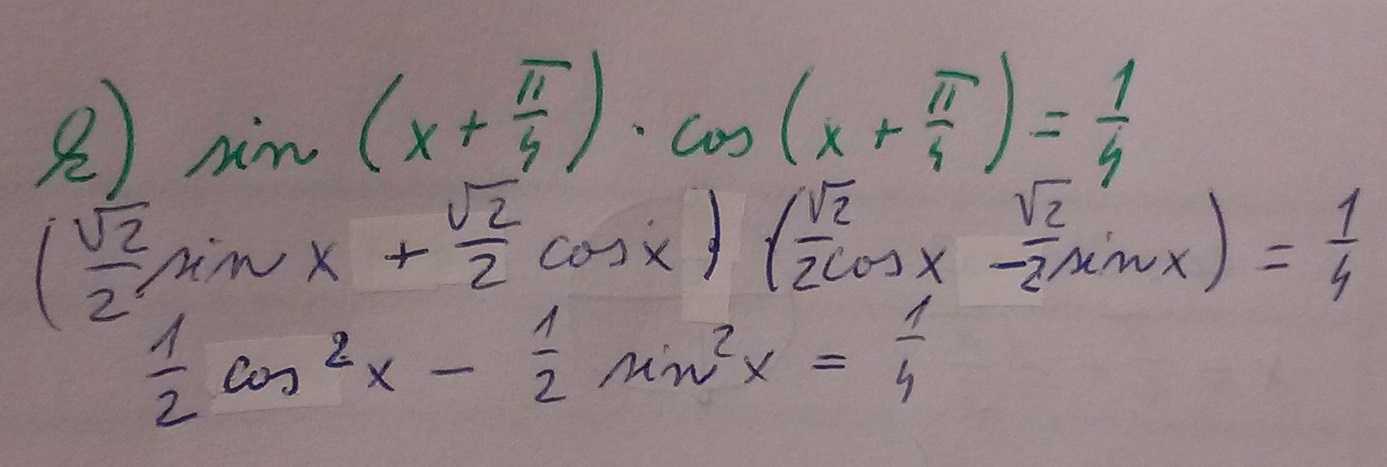 k) sin (x + π/4) · cos (x + π/4) = 1/4
(√2/2 sin x + √2/2 cos x) (√2/2 cos x - √2/2 sin x) = 1/4
1/2 cos²x - 1/2 sin²x = 1/4